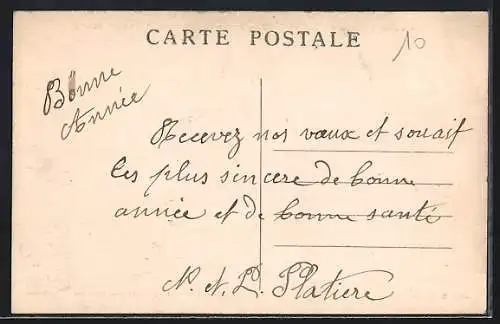 CARTE POSTALE
10
Bonne
Année
Recevez nos vœux et souait
les plus sincere de bonne
année et de bonne santé
N. et L. Platiere